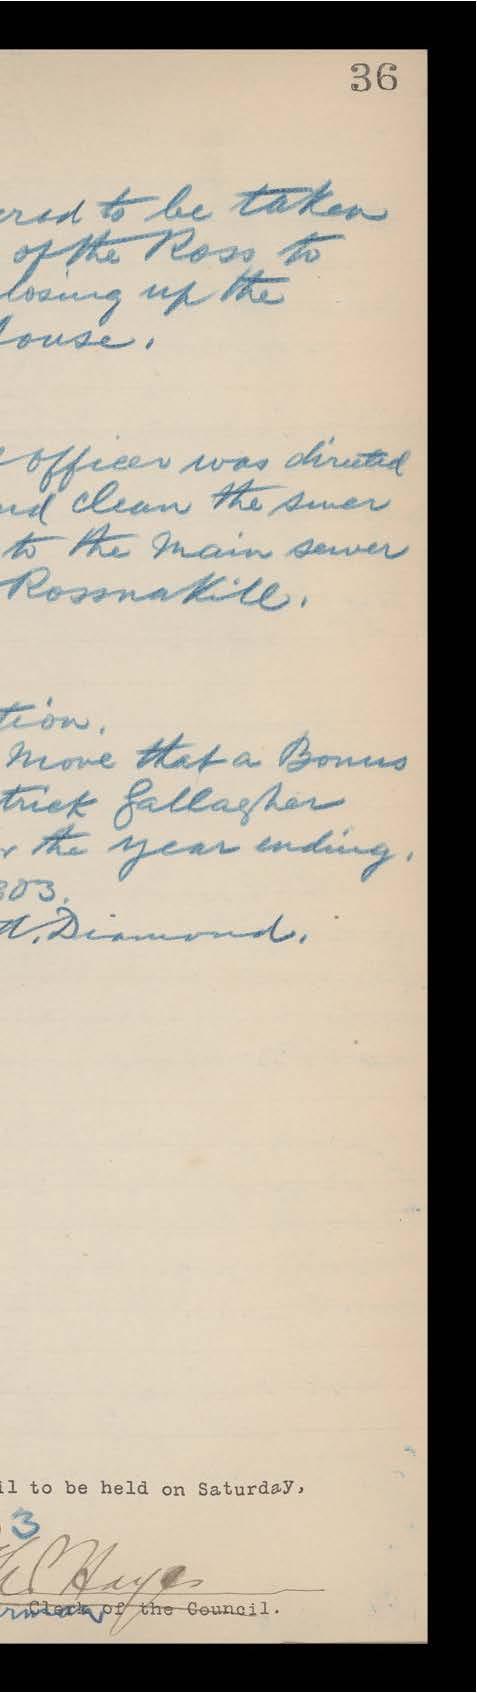 36
ered to be taken
of the Ross to
losing up the
House.
officer was directed
nd clean the sewer
to the main sewer
Rossnakill.
tion.
Move that a Bonus
trick Gallagher
r the year ending.
303.
A. Diamond.
il to be held on Saturday,
3
Hayes
Clerk of the Council.